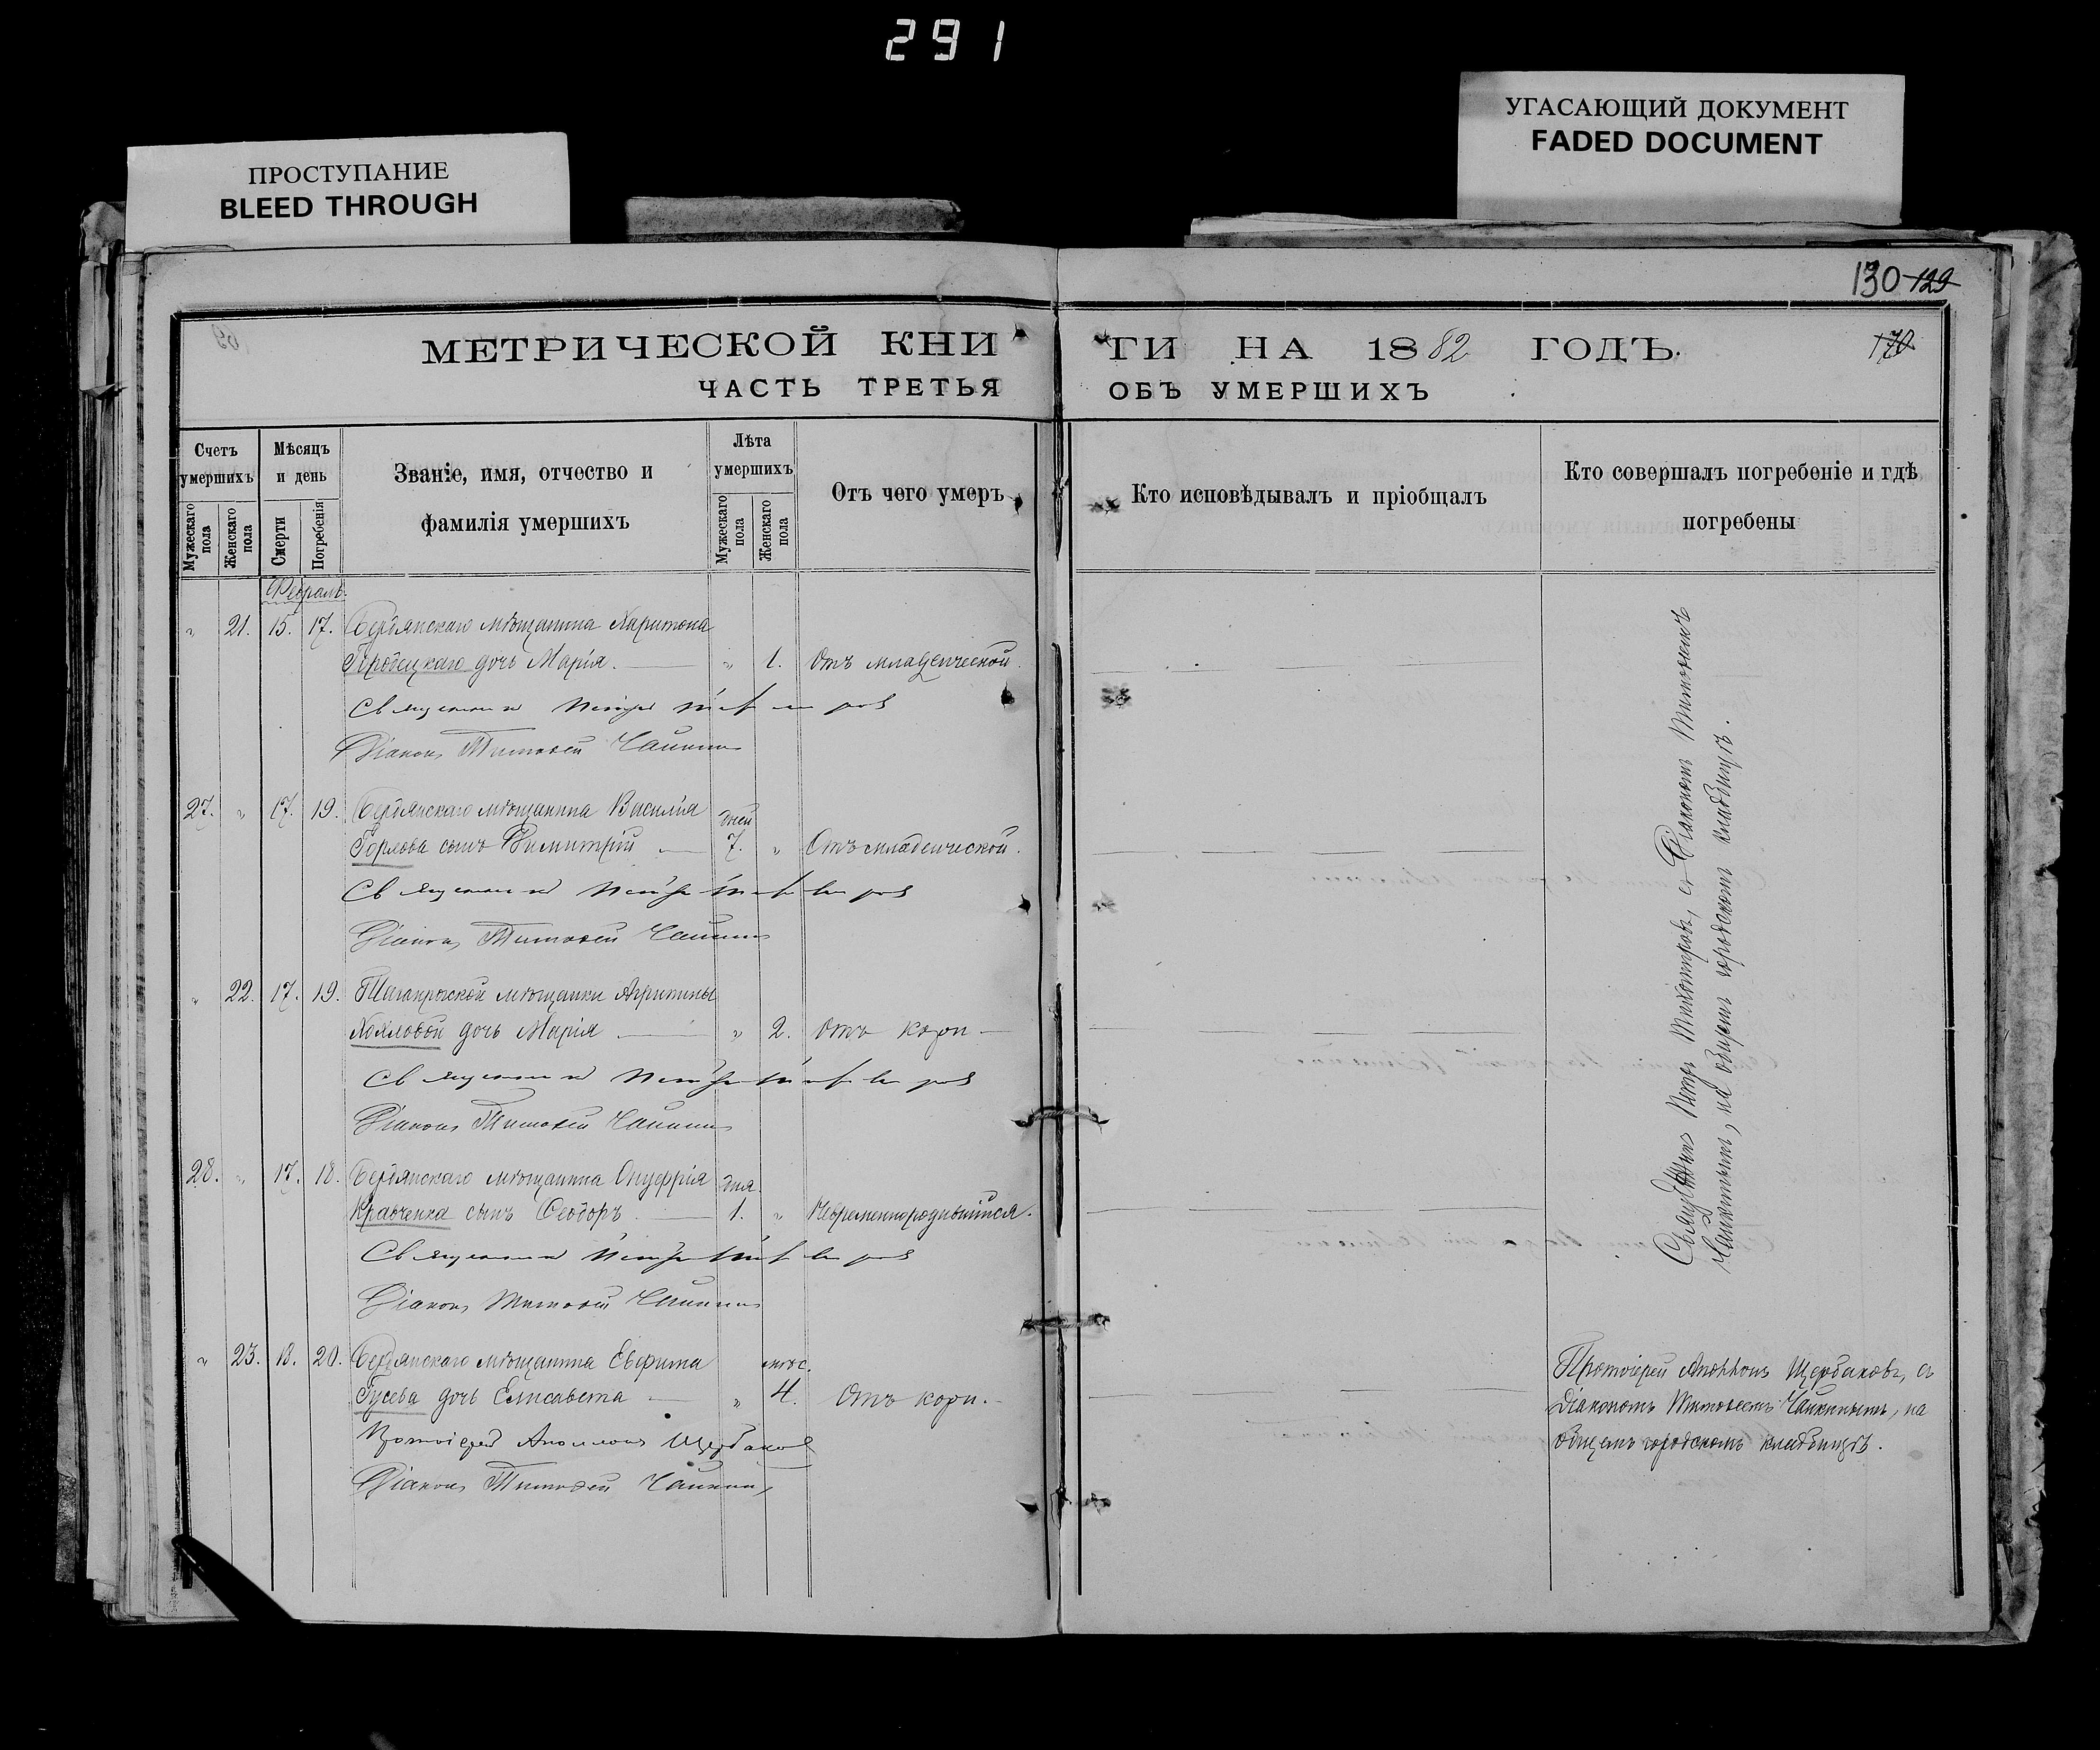 291
УГАСАЮЩИЙ ДОКУМЕНТ
FADED DOCUMENT
ПРОСТУПАНИЕ
BLEED THROUGH
130 129
МЕТРИЧЕСКОЙ КНИ
ГИ НА 1882 ГОДЪ.
170
ЧАСТЬ ТРЕТЬЯ
ОБЪ УМЕРШИХЪ
Счетъ умершихъ
Мужескаго пола
Женскаго пола
Мѣсяцъ и день
Смерти
Погребенія
Званіе, имя, отчество и
фамилія умершихъ
Лѣта умершихъ
Мужескаго пола
Женскаго пола
Отъ чего умеръ
Кто исповѣдывалъ и пріобщалъ
Кто совершалъ погребеніе и гдѣ
погребены
Февраль.
" 21. 15. 17. Бердянскаго мѣщанина Харитона
Городецкаго дочь Марія. " 1. Отъ младенческой.
Священникъ Петръ
Діаконъ Тимофей Чайкинъ
27. " 17. 19. Бердянскаго мѣщанина Василія дней
Горлова сынъ Димитрій 7. " Отъ младенческой.
Священникъ Петръ
Діаконъ Тимофей Чайкинъ
" 22. 17. 19. Таганрогской мѣщанки Агрипины
дочь Марія " 2. Отъ кори
Священникъ Петръ
Діаконъ Тимофей Чайкинъ
28. " 17. 18. Бердянскаго мѣщанина Онуфрія дня.
Кравченка сынъ Ѳеодоръ 1. " Невременнородившійся.
Священникъ Петръ
Діаконъ Тимофей Чайкинъ
" 23. 18. 20. Бердянскаго мѣщанина Евфима мѣс.
Гусева дочь Елисавета " 4. Отъ кори.
Протоіерей Аполлонъ Щербаковъ
Діаконъ Тимофей Чайкинъ
Священникъ Петръ съ Діакономъ Тимофеемъ
Чайкинымъ, на общемъ городскомъ кладбищѣ.
Протоіерей Аполлонъ Щербаковъ, съ
Діакономъ Тимофеемъ Чайкинымъ, на
общемъ городскомъ кладбищѣ.